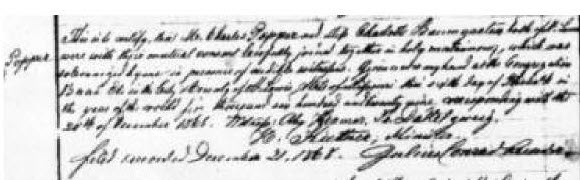 This is to certify, that Mr. Charles Pepper and Miss Charlotte Baumgarten both of St. Louis
Pepper
were with their mutual consent lawfully joined together in holy matrimony, which was
solemnized by me in presence of witnesses. Given under my hand at the Congregation
B'nai El in the City & County of St. Louis, State of Missouri this sixth day of
the year of the world five thousand six hundred and twenty nine, corresponding with the
20th of December 1868. Witness:
H. Kuttner, Minister.
filed & recorded December 21. 1868. Julius Conrad Recorder